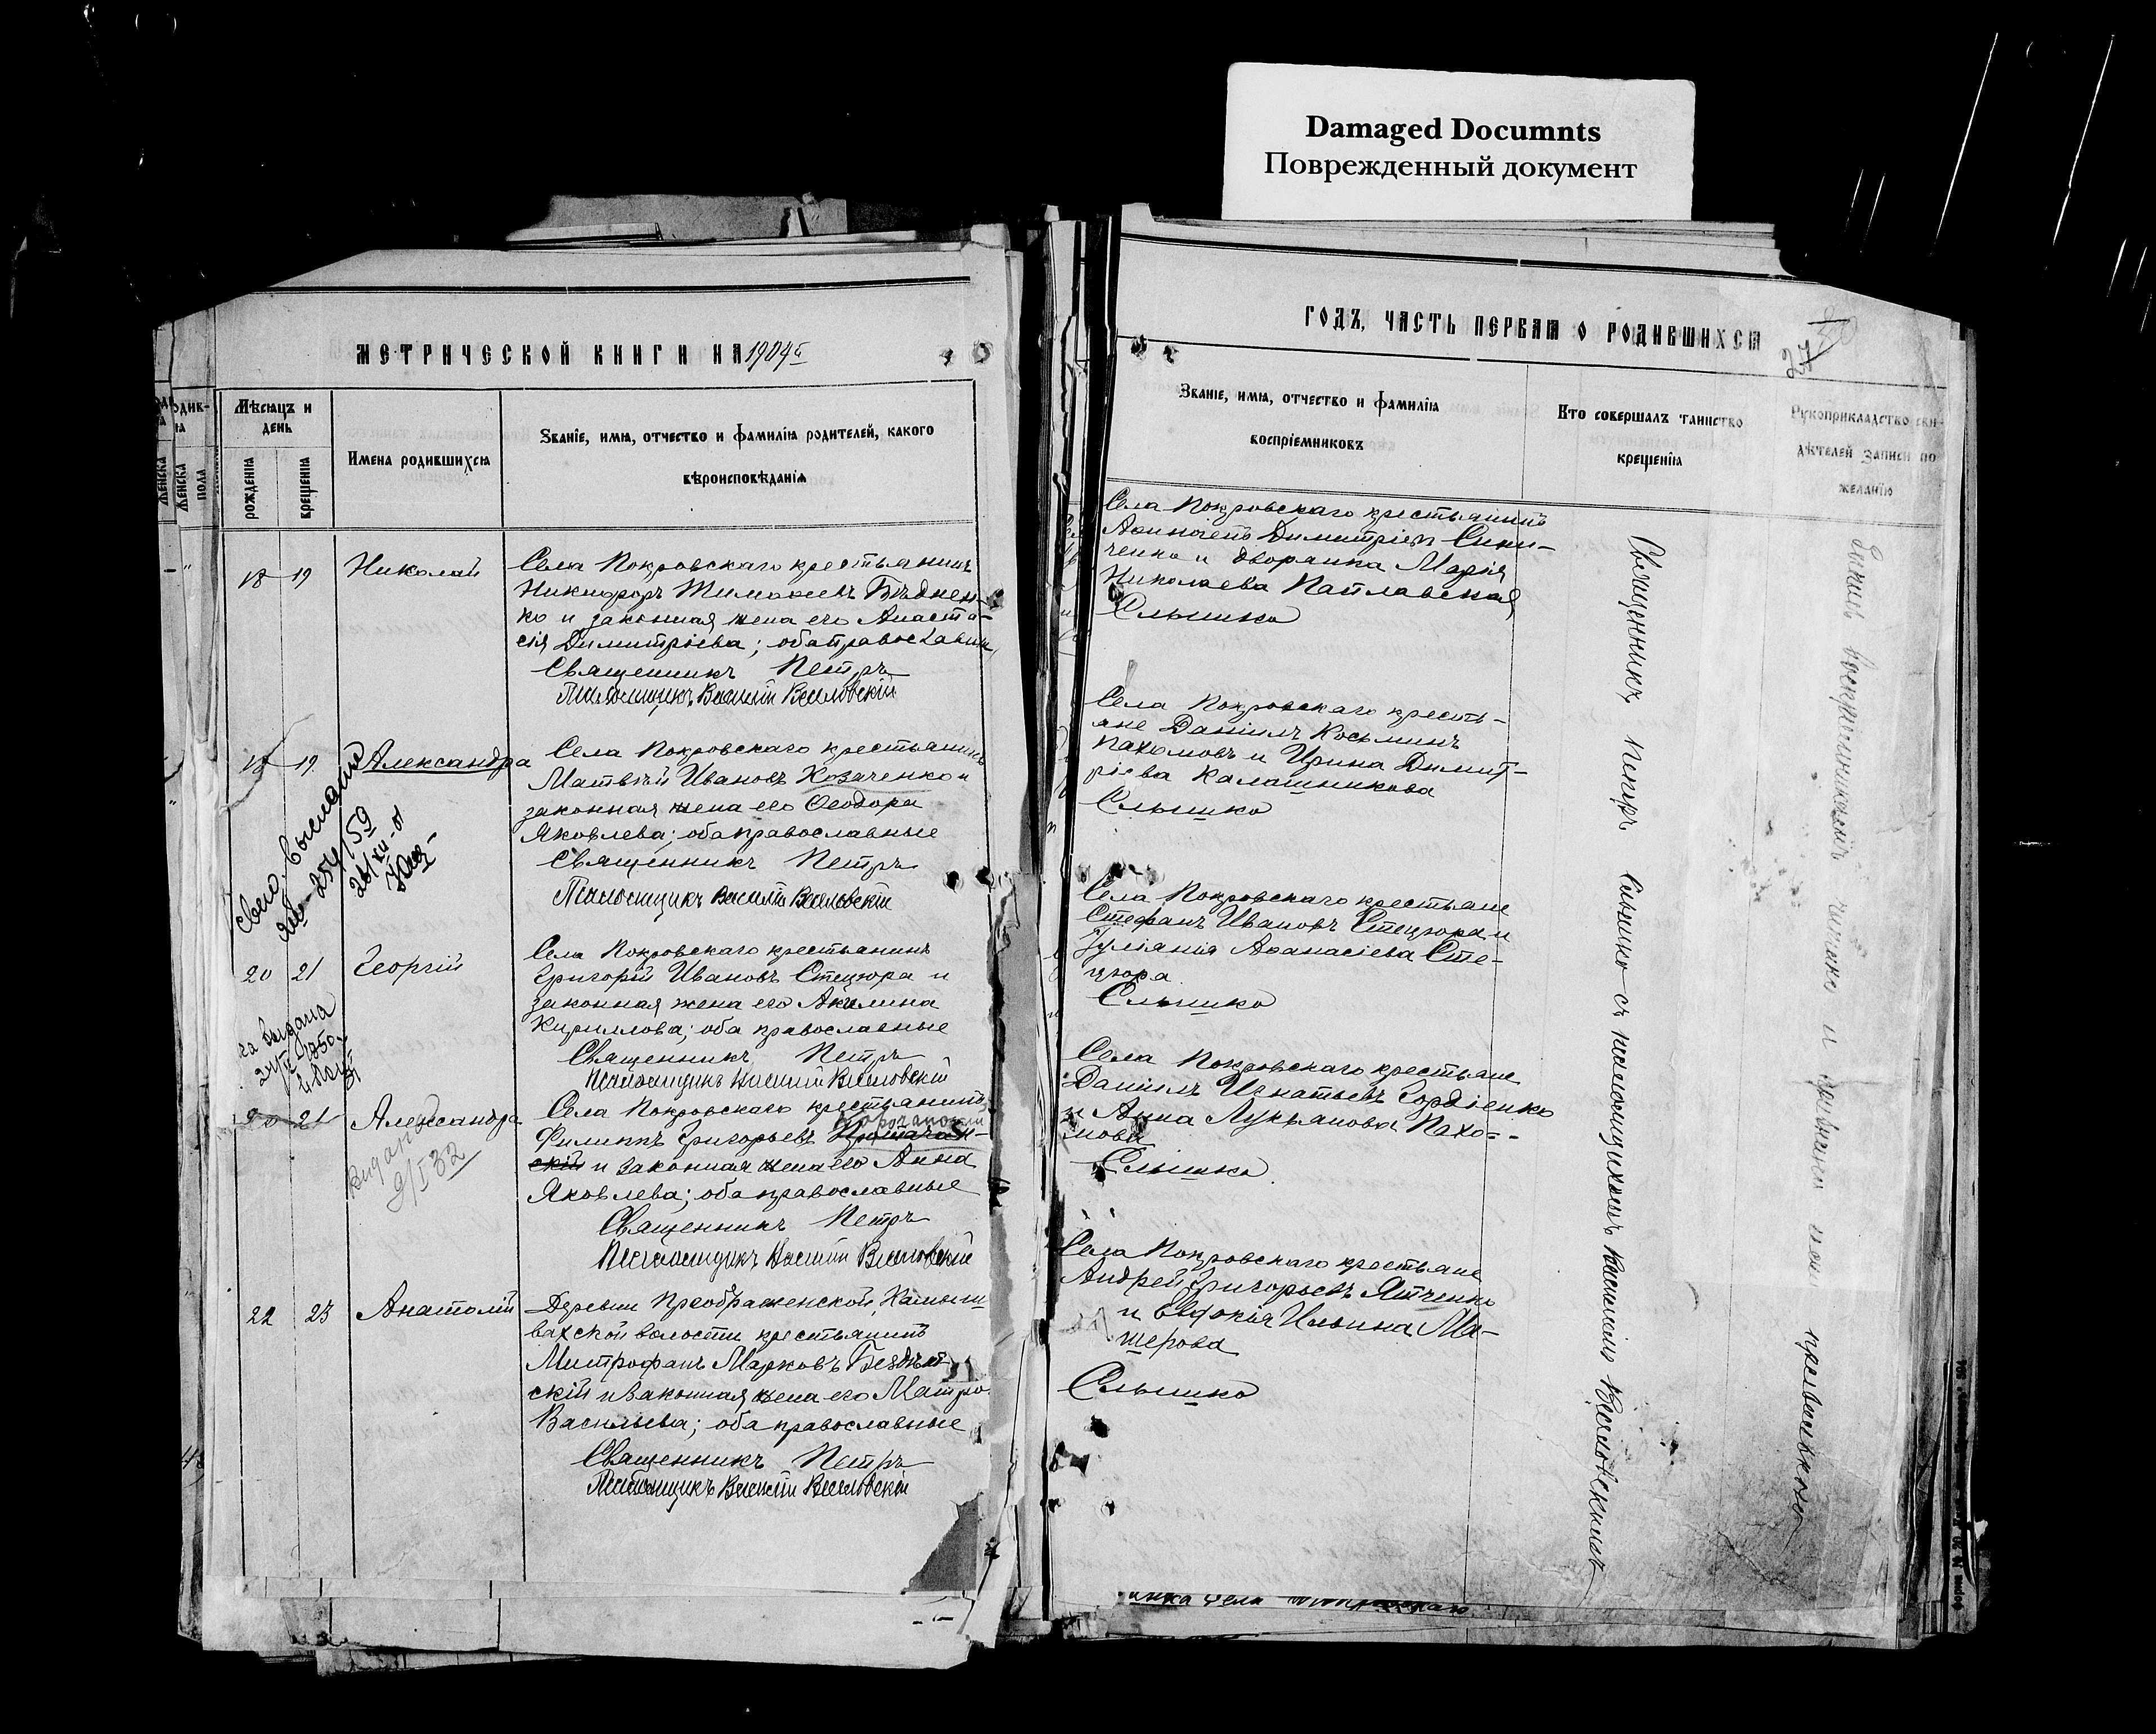 Damaged Documnts
Поврежденный документ
МЕТРИЧЕСКОЙ КНИГИ НА 1904 г
Мѣсяцъ и день
рожденія
крещенія
Имена родившихся
Званіе, имя, отчество и фамилія родителей, какого
вѣроисповѣданія
18 19 Николай
Села Покровскаго крестьянинъ
Никифоръ Тимоѳеевъ Бѣднен-
ко и законная жена его Анаста-
сія Димитріева; оба православны
Священникъ Петръ
Псаломщикъ Василій Веселовскій
18 19 Александра
Села Покровскаго крестьянинъ
Матвѣй Ивановъ Козаченко и
законная жена его Ѳеодора
Яковлева; оба православные
Священникъ Петръ
Псаломщикъ Василій Веселовскій
20 21 Георгій
Села Покровскаго крестьянинъ
Григорій Ивановъ Стецюра и
законная жена его Акилина
Кириллова; оба православные
Священникъ Петръ
Псаломщикъ Василій Веселовскій
20 21 Александра
Села Покровскаго крестьянинъ
Филиппъ Григорьевъ
скій и законная жена его Анна
Яковлева; оба православные
Священникъ Петръ
Псаломщикъ Василій Веселовскій
9/I 32
22 23 Анатолій
Деревни Преображенской, Камыше
вахской волости крестьянинъ
Митрофанъ Марковъ
скій и законная жена его Матро
Васильева; оба православные
Священникъ Петръ
Псаломщикъ Василій Веселовскій
ГОДЪ, ЧАСТЬ ПЕРВАЯ О РОДИВШИХСЯ
27
Званіе, имя, отчество и фамилія
воспріемниковъ
Кто совершалъ таинство
крещенія
Рукоприкладство сви-
дѣтелей записи по
желанію
Села Покровскаго крестьянинъ
Димитріевъ Сини-
ченко и дворянка Марія
Николаева Патлавская
Слышко
Села Покровскаго кресть-
яне Даніилъ Косьминъ
Пахомовъ и Ирина Димит-
ріева Калашникова
Слышко
Села Покровскаго крестьяне
Стефанъ Ивановъ Стецюра и
Іуліанія Аѳанасіева Сте-
цюра
Слышко
Села Покровскаго крестьяне
Даніилъ Игнатьевъ Гордіенко
и Анна Лукьянова Пахо-
мова
Слышко
Села Покровскаго крестьяне
Андрей Григорьевъ Ятченко
и Евдокія Ильина Ма-
шерова
Слышко
Священникъ Петръ Слышко съ псаломщикомъ Василіемъ Веселовскимъ